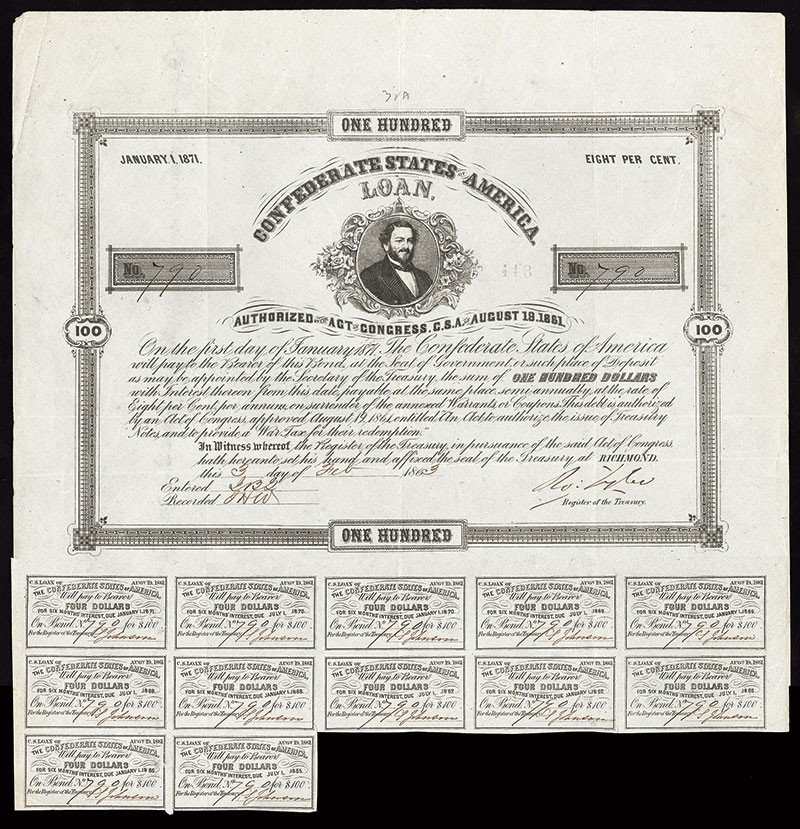 3VA
ONE HUNDRED
JANUARY, 1, 1871.
EIGHT PER CENT.
CONFEDERATE STATES OF AMERICA.
LOAN.
No. 790
No. 790
AUTHORIZED BY THE ACT OF CONGRESS, C.S.A. OF AUGUST 19, 1861.
100
100
On the first day of January 1871, The Confederate States of America
will pay to the Bearer of this Bond, at the Seat of Government, or such place of Deposit
as may be appointed by the Secretary of the Treasury, the sum of ONE HUNDRED DOLLARS
with Interest thereon from this date, payable at the same place, semi annually, at the rate of
Eight per Cent, per annum, on surrender of the annexed Warrants, or Coupons. This debt is authorized
by an Act of Congress, approved August 19, 1861, entitled "An Act to authorize the issue of Treasury
Notes, and to provide a War Tax for their redemption."
In Witness whereof, the Register of the Treasury, in pursuance of the said Act of Congress,
hath hereunto set his hand and affixed the seal of the Treasury at RICHMOND.
this 3 day of Feb 1863
Entered
Recorded
Ro: Tyler
Register of the Treasury.
ONE HUNDRED
C. S. LOAN OF AUGT 19, 1861.
THE CONFEDERATE STATES OF AMERICA,
Will pay to Bearer
FOUR DOLLARS
FOR SIX MONTHS INTEREST, DUE JANUARY 1, 1871.
On Bond, No 790 for $100
For the Register of the Treasury, Johnson
C. S. LOAN OF AUGT 19, 1861.
THE CONFEDERATE STATES OF AMERICA,
Will pay to Bearer
FOUR DOLLARS
FOR SIX MONTHS INTEREST, DUE JULY 1, 1870.
On Bond, No 790 for $100
For the Register of the Treasury, Johnson
C. S. LOAN OF AUGT 19, 1861.
THE CONFEDERATE STATES OF AMERICA,
Will pay to Bearer
FOUR DOLLARS
FOR SIX MONTHS INTEREST, DUE JANUARY 1, 1870.
On Bond, No 790 for $100
For the Register of the Treasury, Johnson
C. S. LOAN OF AUGT 19, 1861.
THE CONFEDERATE STATES OF AMERICA,
Will pay to Bearer
FOUR DOLLARS
FOR SIX MONTHS INTEREST, DUE JULY 1, 1869.
On Bond, No 790 for $100
For the Register of the Treasury, Johnson
C. S. LOAN OF AUGT 19, 1861.
THE CONFEDERATE STATES OF AMERICA,
Will pay to Bearer
FOUR DOLLARS
FOR SIX MONTHS INTEREST, DUE JANUARY 1, 1869.
On Bond, No 790 for $100
For the Register of the Treasury, Johnson
C. S. LOAN OF AUGT 19, 1861.
THE CONFEDERATE STATES OF AMERICA,
Will pay to Bearer
FOUR DOLLARS
FOR SIX MONTHS INTEREST, DUE JULY 1, 1868.
On Bond, No 790 for $100
For the Register of the Treasury, Johnson
C. S. LOAN OF AUGT 19, 1861.
THE CONFEDERATE STATES OF AMERICA,
Will pay to Bearer
FOUR DOLLARS
FOR SIX MONTHS INTEREST, DUE JANUARY 1, 1868.
On Bond, No 790 for $100
For the Register of the Treasury, Johnson
C. S. LOAN OF AUGT 19, 1861.
THE CONFEDERATE STATES OF AMERICA,
Will pay to Bearer
FOUR DOLLARS
FOR SIX MONTHS INTEREST, DUE JULY 1, 1867.
On Bond, No 790 for $100
For the Register of the Treasury, Johnson
C. S. LOAN OF AUGT 19, 1861.
THE CONFEDERATE STATES OF AMERICA,
Will pay to Bearer
FOUR DOLLARS
FOR SIX MONTHS INTEREST, DUE JANUARY 1, 1867.
On Bond, No 790 for $100
For the Register of the Treasury, Johnson
C. S. LOAN OF AUGT 19, 1861.
THE CONFEDERATE STATES OF AMERICA,
Will pay to Bearer
FOUR DOLLARS
FOR SIX MONTHS INTEREST, DUE JULY 1, 1866.
On Bond, No 790 for $100
For the Register of the Treasury, Johnson
C. S. LOAN OF AUGT 19, 1861.
THE CONFEDERATE STATES OF AMERICA,
Will pay to Bearer
FOUR DOLLARS
FOR SIX MONTHS INTEREST, DUE JANUARY 1, 1866.
On Bond, No 790 for $100
For the Register of the Treasury, Johnson
C. S. LOAN OF AUGT 19, 1861.
THE CONFEDERATE STATES OF AMERICA,
Will pay to Bearer
FOUR DOLLARS
FOR SIX MONTHS INTEREST, DUE JULY 1, 1865.
On Bond, No 790 for $100
For the Register of the Treasury, Johnson